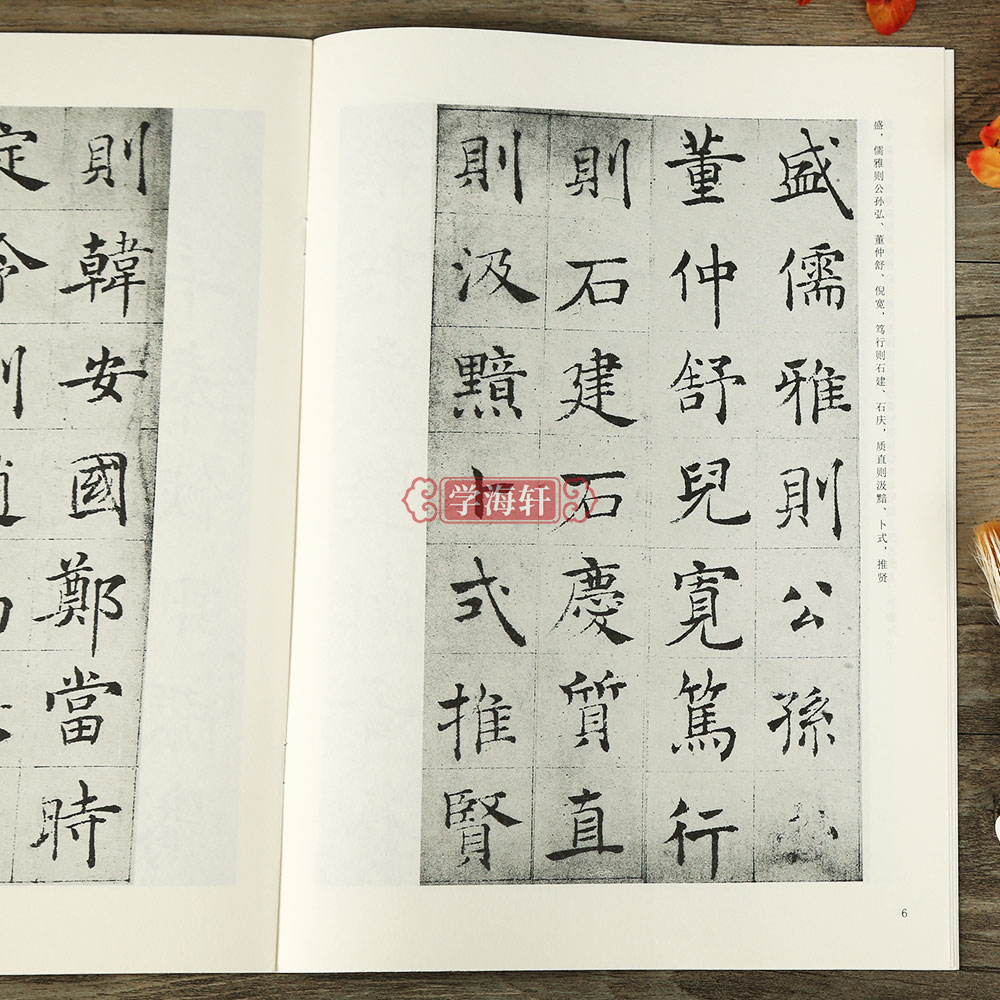 盛，儒雅则公孙弘、董仲舒、倪宽，笃行则石建、石庆，质直则汲黯、卜式，推贤
盛儒雅則公孫
董仲舒兒寬篤行
則石建石慶質直
則汲黯卜式推賢
6
則韓安國鄭當時
定令
学海轩